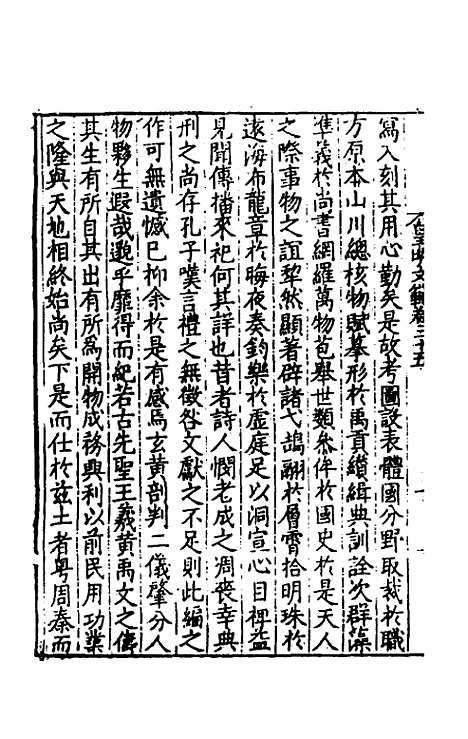 皇明文範卷三十五
寫入刻其用心勤矣是故考圖設表體國分野取裁於職
方原本山川總核物賦摹形於禹貢纘緝典訓詮次群藻
準義於尚書網羅萬物苞舉世類叅侔於國史於是天人
之際事物之誼犂然顯著辟諸弋鵠翮於層霄拾明珠於
遠海布龍章於晦夜奏鈞樂於虛庭足以洞宣心目裨益
見聞傳播來祀何其詳也昔者詩人憫老成之凋喪幸典
刑之尚存孔子嘆言禮之無徵咎文獻之不足則此編之
作可無遺憾巳抑余於是有感焉玄黃剖判二儀肇分人
物夥生遐哉邈乎靡得而紀若古先聖王羲黃禹文之儔
其生有所自其出有所為開物成務興利以前民用功業
之隆與天地相終始尚矣下是而仕於玆土者粤周秦而